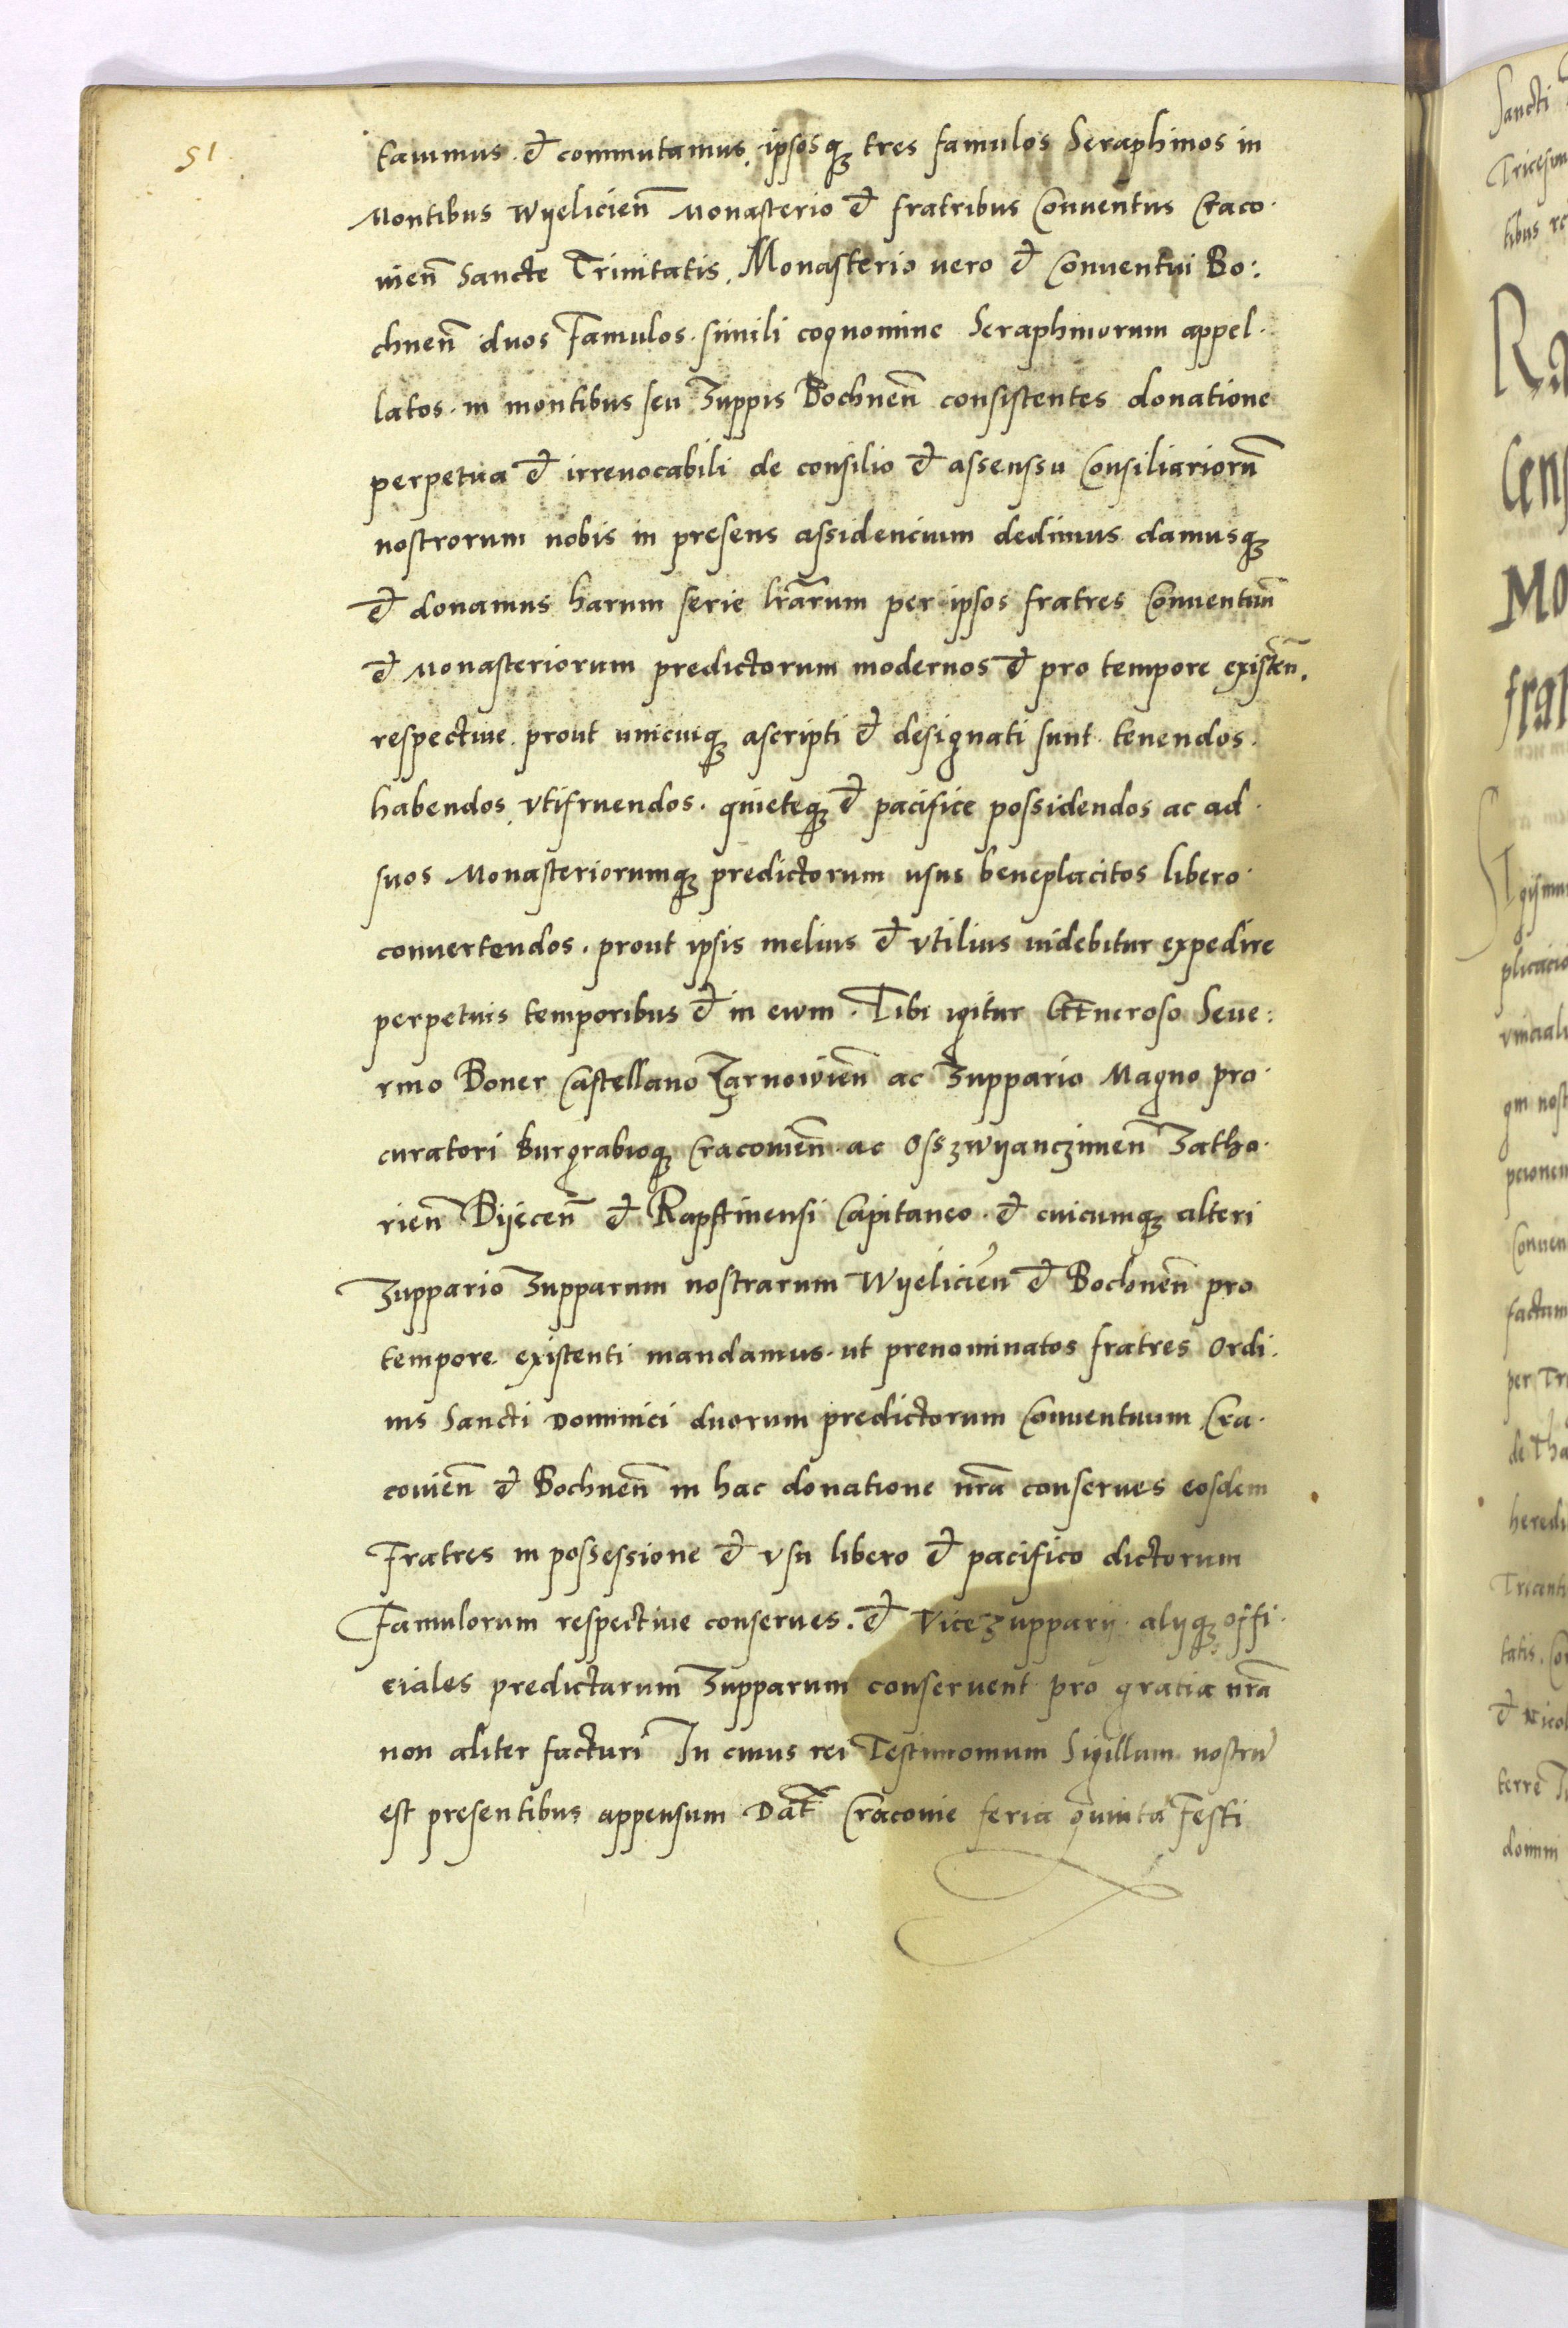 51
tauimus. et commutamus, ipsosqꝫ tres famulos Seraphinos in
Montibus Wyelicien̄ Monasterio et fratribus Conuentus Craco.
uien̄ Sancte Trinitatis. Monasterio uero et Conuentui Bo:
chnen̄ duos Famulos. simili cognomine Seraphinorum appel.
latos. in montibus seu Zuppis Bochnen̄ consistentes donatione
perpetua et irreuocabili de consilio et assenssu Consiliariorū
nostrorum nobis in presens assidencium dedimus damusqꝫ
et donamus harum serie lrārum per ipsos fratres Conuentuū
et Monasteriorum predictorum modernos et pro tempore existen̄.
respectiue. prout unicuiqꝫ ascripti et designati sunt. tenendos.
habendos, vtifruendos. quieteqꝫ et pacifice possidendos ac ad.
suos Monasteriorumqꝫ predictorum usus beneplacitos libero.
conuertendos. prout ipsis melius et vtilius uidebitur expedire
perpetuis temporibus et in ewm. Tibi igitur Generoso Seue:
rino Boner Castellano Zarnowien̄ ac Zuppario Magno pro.
curatori burgrabioqꝫ Cracouien̄. ac Osszwyanczimen̄ Zatho.
rien̄ Byecen̄ et Rapstinensi Capitaneo. et cuicumqꝫ alteri
Zuppario Zupparum nostrarum Wyelicien̄ et Bochnen̄ pro
tempore. existenti mandamus. ut prenominatos fratres Ordi.
nis Sancti Dominici duorum predictorum Conuentuum Cra.
couien̄ et Bochnen̄ in hac donatione nrā conserues eosdem
Fratres in possessione et vsu libero et pacifico dictorum
Famulorum respectiue conserues. et Vicezupparij. alyqꝫ offi.
ciales predictarum Zupparum conseruent pro gratia nrā
non aliter facturi In cuius rei Testimonium Sigillum nostrū
est presentibus appensum Dat̄ Cracouie feria quinta Festi
Sancti
Tricesim
tibus
Cens
Mo
frat
plicacio
uinciali
gni nost
Conuen
factum
per Tri
de Tha
heredi
tatis. Con
et Nicol
terre
domini